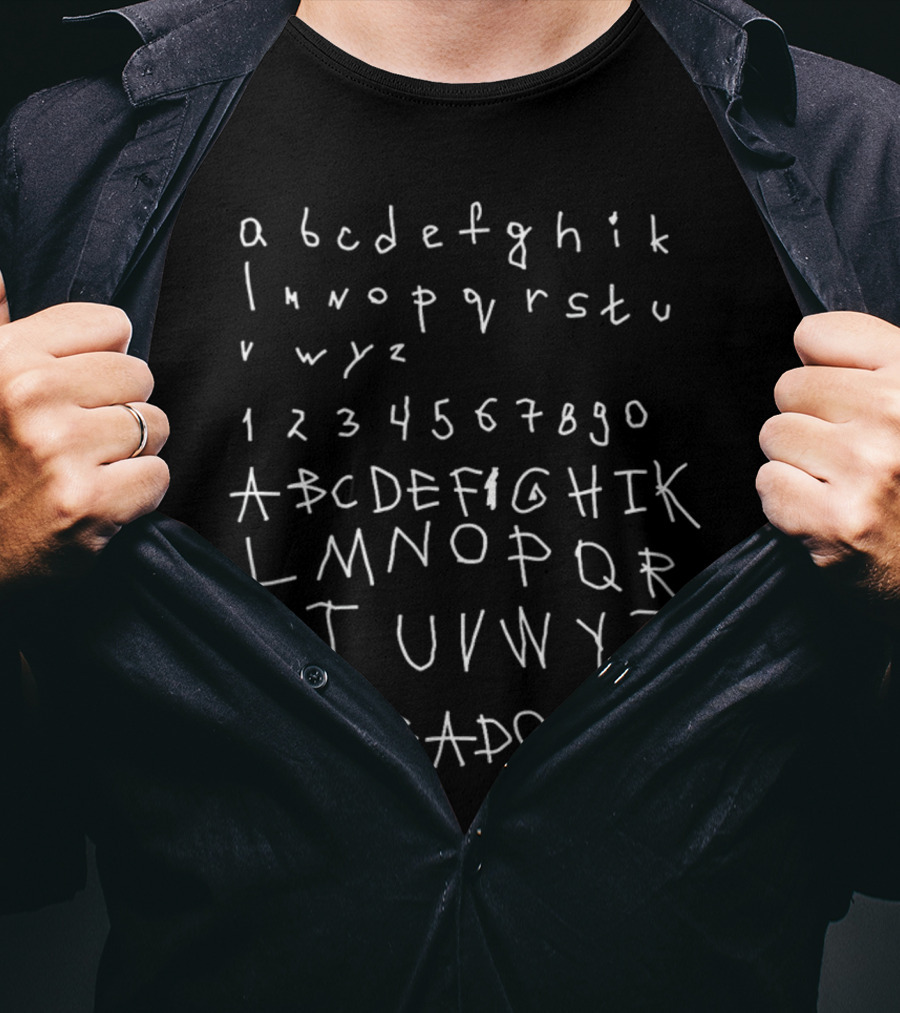 a b c d e f g h i k
l m n o p q r s t u
v w y z
1 2 3 4 5 6 7 8 9 0
A B C D E F G H I K
L M N O P Q R
T U V W Y